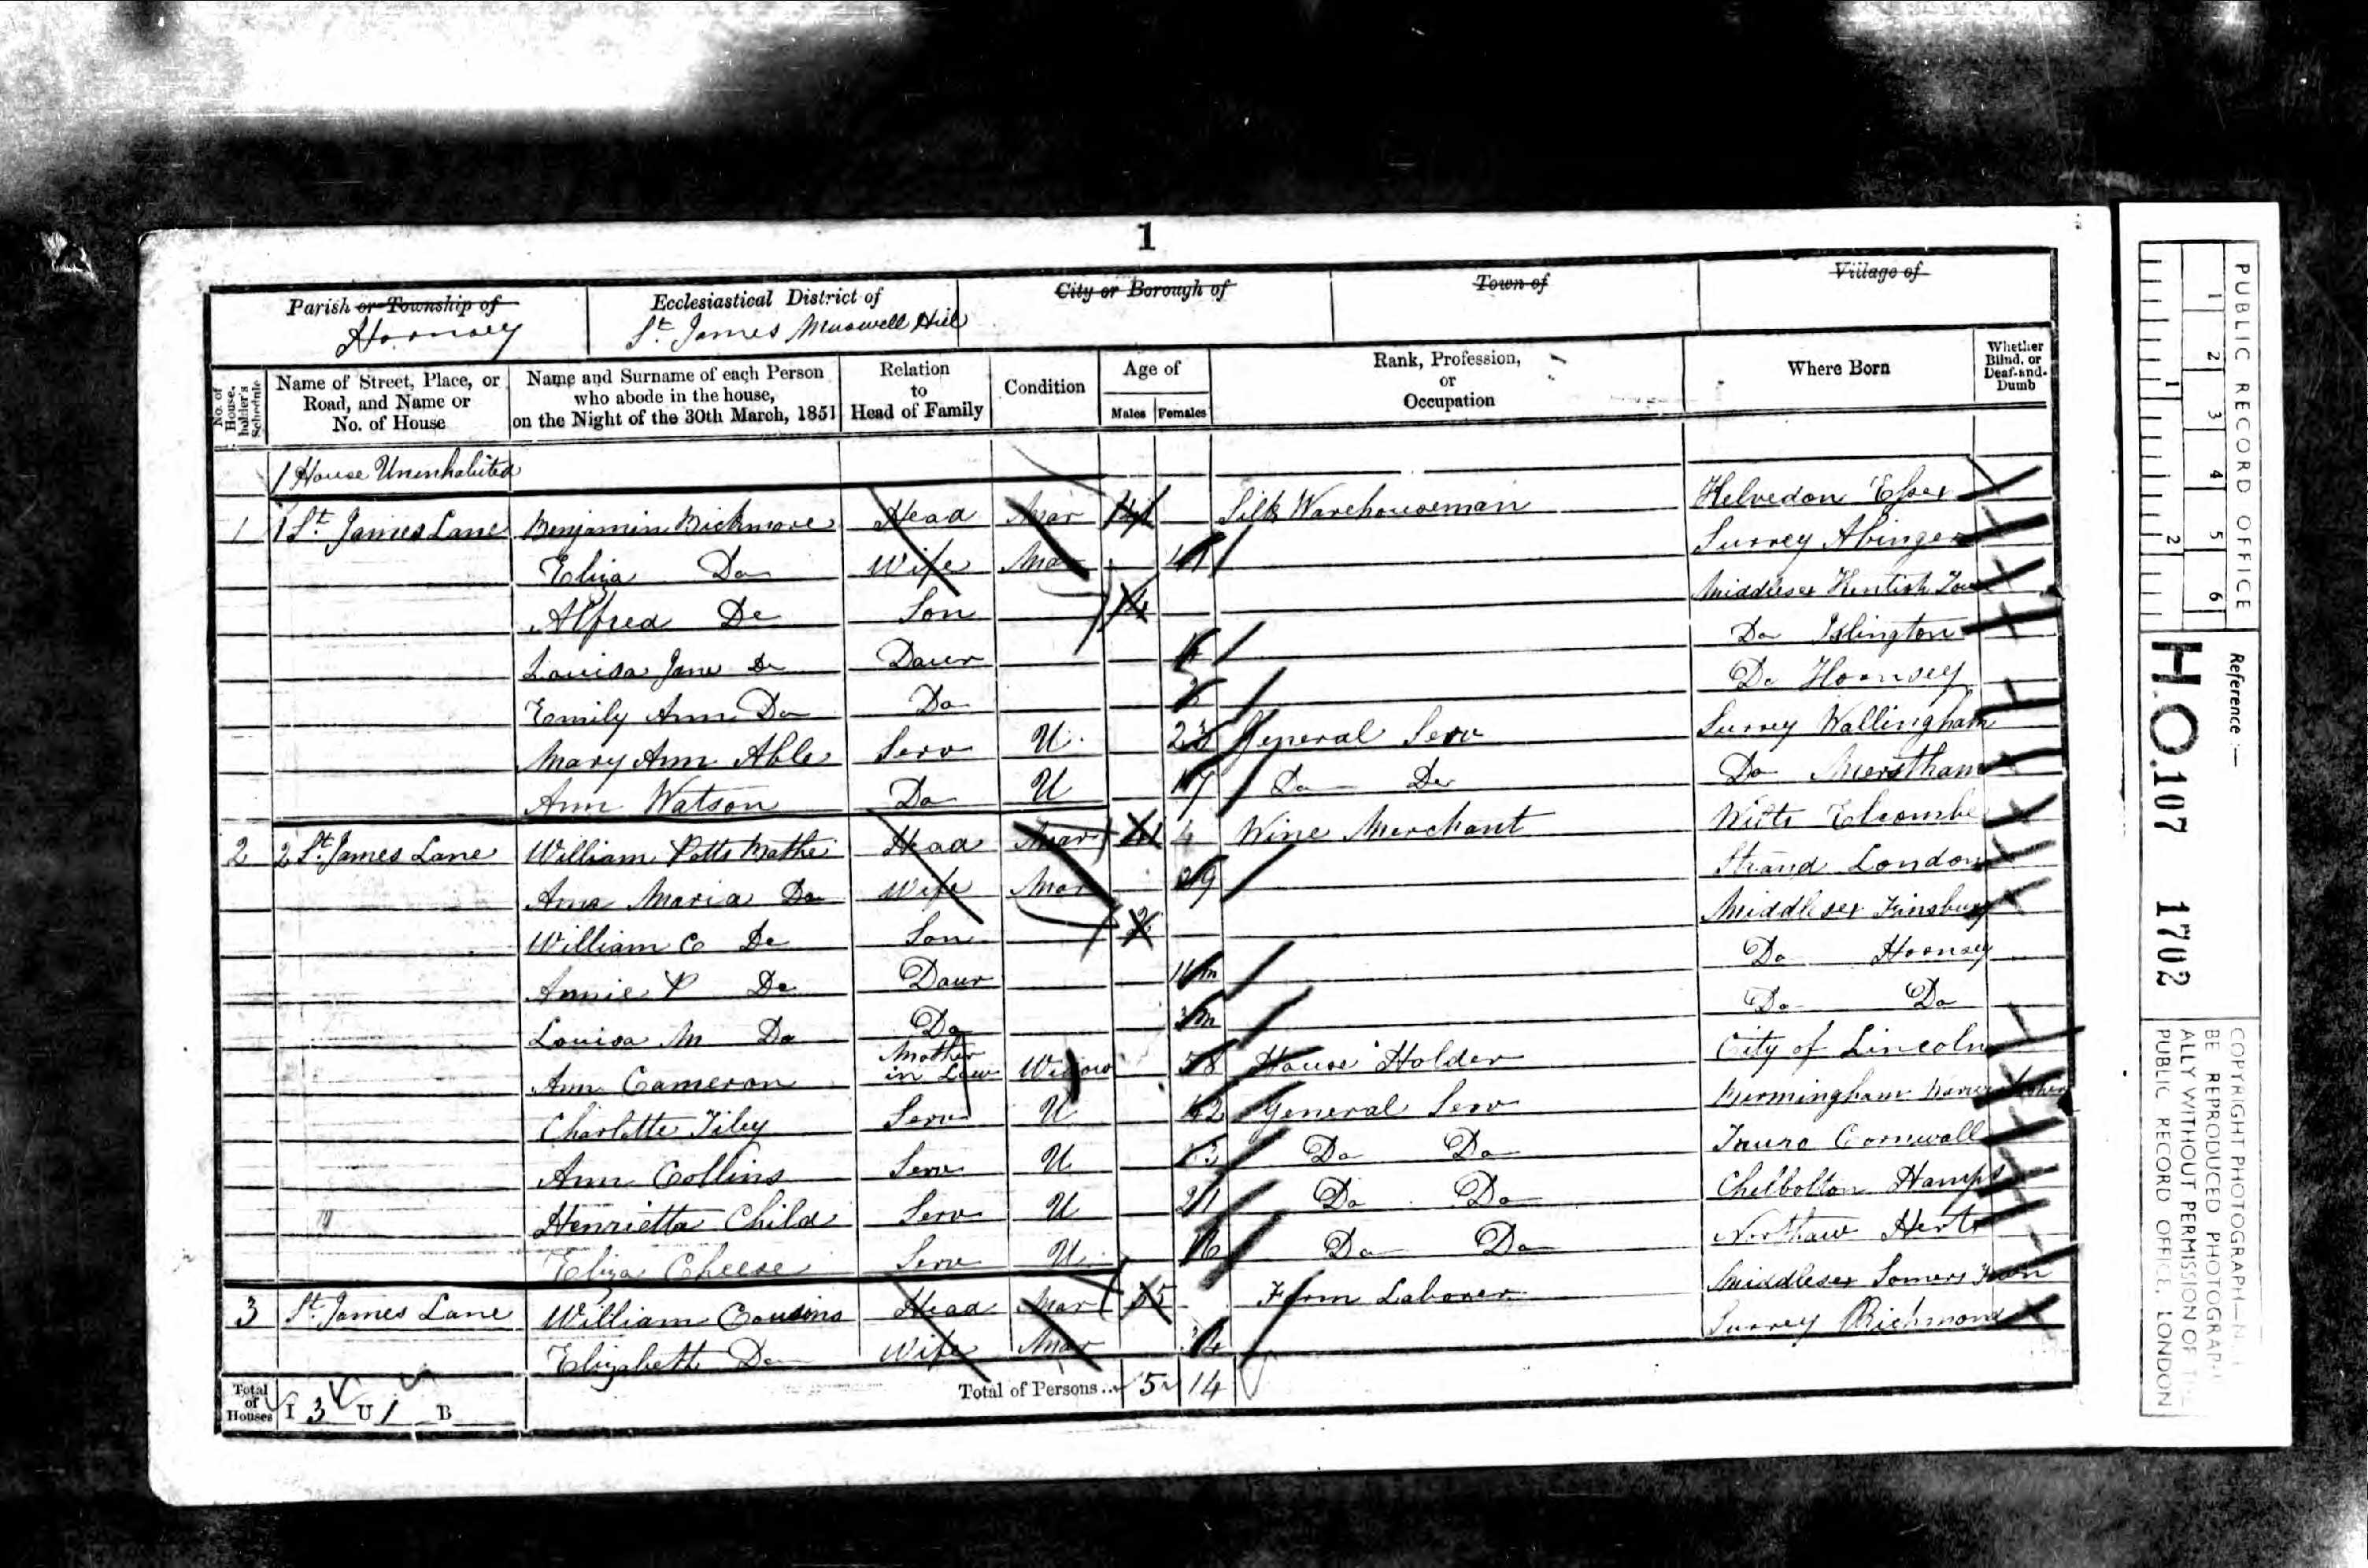 1
Parish or Township of
Hornsey
Ecclesiastical District of
St James Muswell Hill
City or Borough of
Town of
Village of
No. of House-holder's Schedule
Name of Street, Place, or Road, and Name or No. of House
Name and Surname of each Person who abode in the house, on the Night of the 30th March, 1851
Relation to Head of Family
Condition
Age of
Males Females
Rank, Profession, or Occupation
Where Born
Whether Blind, or Deaf-and-Dumb
1 House Uninhabited
1 1 St James Lane Benjamin Bickmore Head Mar Silk Warehouseman Helvedon Essex
Eliza Do Wife Mar 41 Surrey Abinger
Alfred Do Son 14 Middlesex Kentish Town
Louisa Jane Do Daur Do Islington
Emily Ann Do Do Do Hornsey
Mary Ann Able Serv U 23 General Serv Surrey Wallingham
Ann Watson Do U 17 Do Do Do Merstham
2 2 St James Lane William Potts Head Mar 41 4 Wine Merchant Wilts Elcombe
Ann Maria Do Wife Mar 29 Strand London
William C Do Son 2 Middlesex Finsbury
Annie P Do Daur 11m Do Hornsey
Louisa M Do Do Do Do
Ann Cameron Mother in Law Widow 58 House Holder City of Lincoln
Charlotte Tiley Serv U General Serv Birmingham
Ann Collins Serv U Do Do Truro Cornwall
Henrietta Child Serv U 21 Do Do Chelbolton Hamps
Eliza Cheese Serv U 16 Do Do Northaw Herts
3 St James Lane William Cousins Head Mar Farm Laborer Middlesex Somers Town
Elizabeth Do Wife Mar Surrey Richmond
Total of Houses I 3 U 1 B
Total of Persons... 5 14
PUBLIC RECORD OFFICE
1 2 3 4 5 6
1 2
Reference :—
H.O. 107 1702
COPYRIGHT PHOTOGRAPH—
BE REPRODUCED PHOTOGRAPH
ALLY WITHOUT PERMISSION OF THE
PUBLIC RECORD OFFICE, LONDON